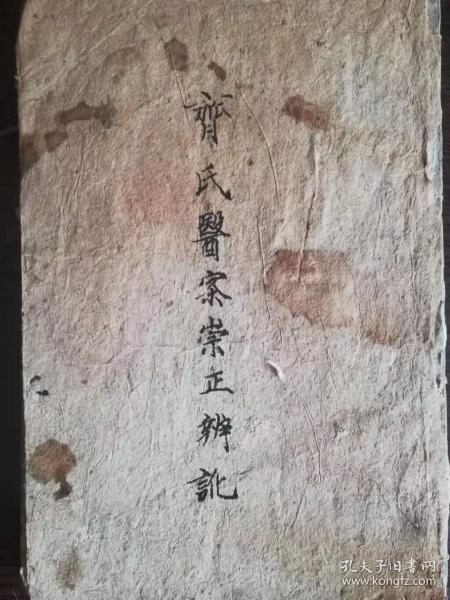 齊氏醫案崇正辨訛
孔夫子旧书网
www.kongfz.com